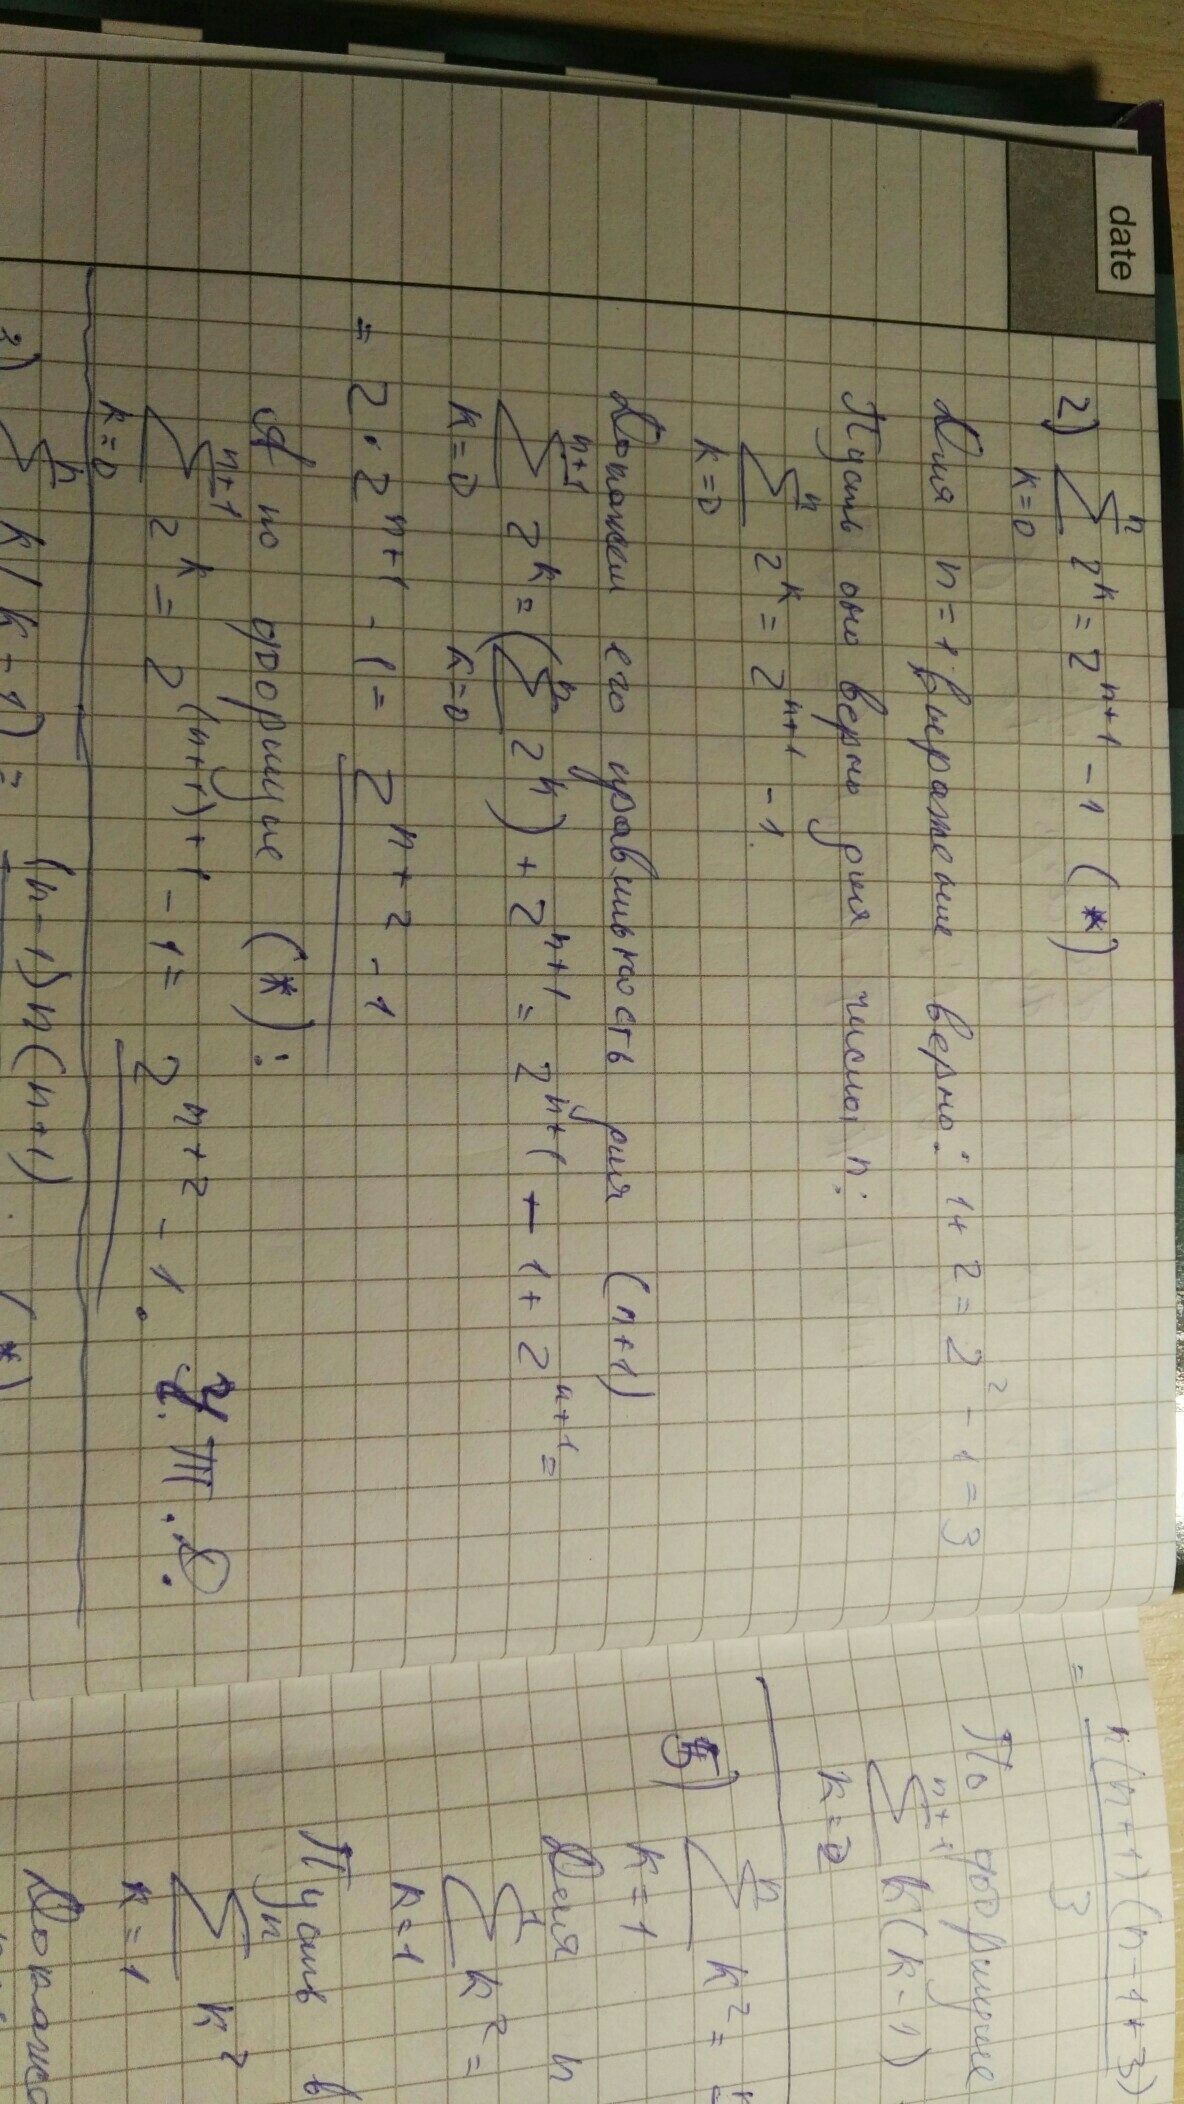 date
2) n
∑ 2^k = 2^(n+1) - 1 (*)
k=0
Для n=1 выражение верно: 1+2 = 2^2 - 1 = 3
Пусть оно верно для числа n:
n
∑ 2^k = 2^(n+1) - 1.
k=0
Докажем его правильность для (n+1)
n+1 n
∑ 2^k = (∑ 2^k) + 2^(n+1) = 2^(n+1) - 1 + 2^(n+1) =
k=0 k=0
= 2 · 2^(n+1) - 1 = 2^(n+2) - 1
А по формуле (*):
n+1
∑ 2^k = 2^((n+1)+1) - 1 = 2^(n+2) - 1.
k=0
Ч.Т.Д.
3) n
∑ k(k-1) = (n-1)n(n+1) (*)
= n(n+1)(n-1+3)
3
По формуле
n+1
∑ k(k-1)
k=2
5) n
∑ k^2 =
k=1
Для n
1
∑ k^2 =
k=1
Пусть в
n
∑ k^2
k=1